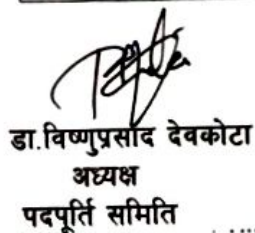 डा.विष्णुप्रसाद देवकोटा
अध्यक्ष
पदपूर्ति समिति